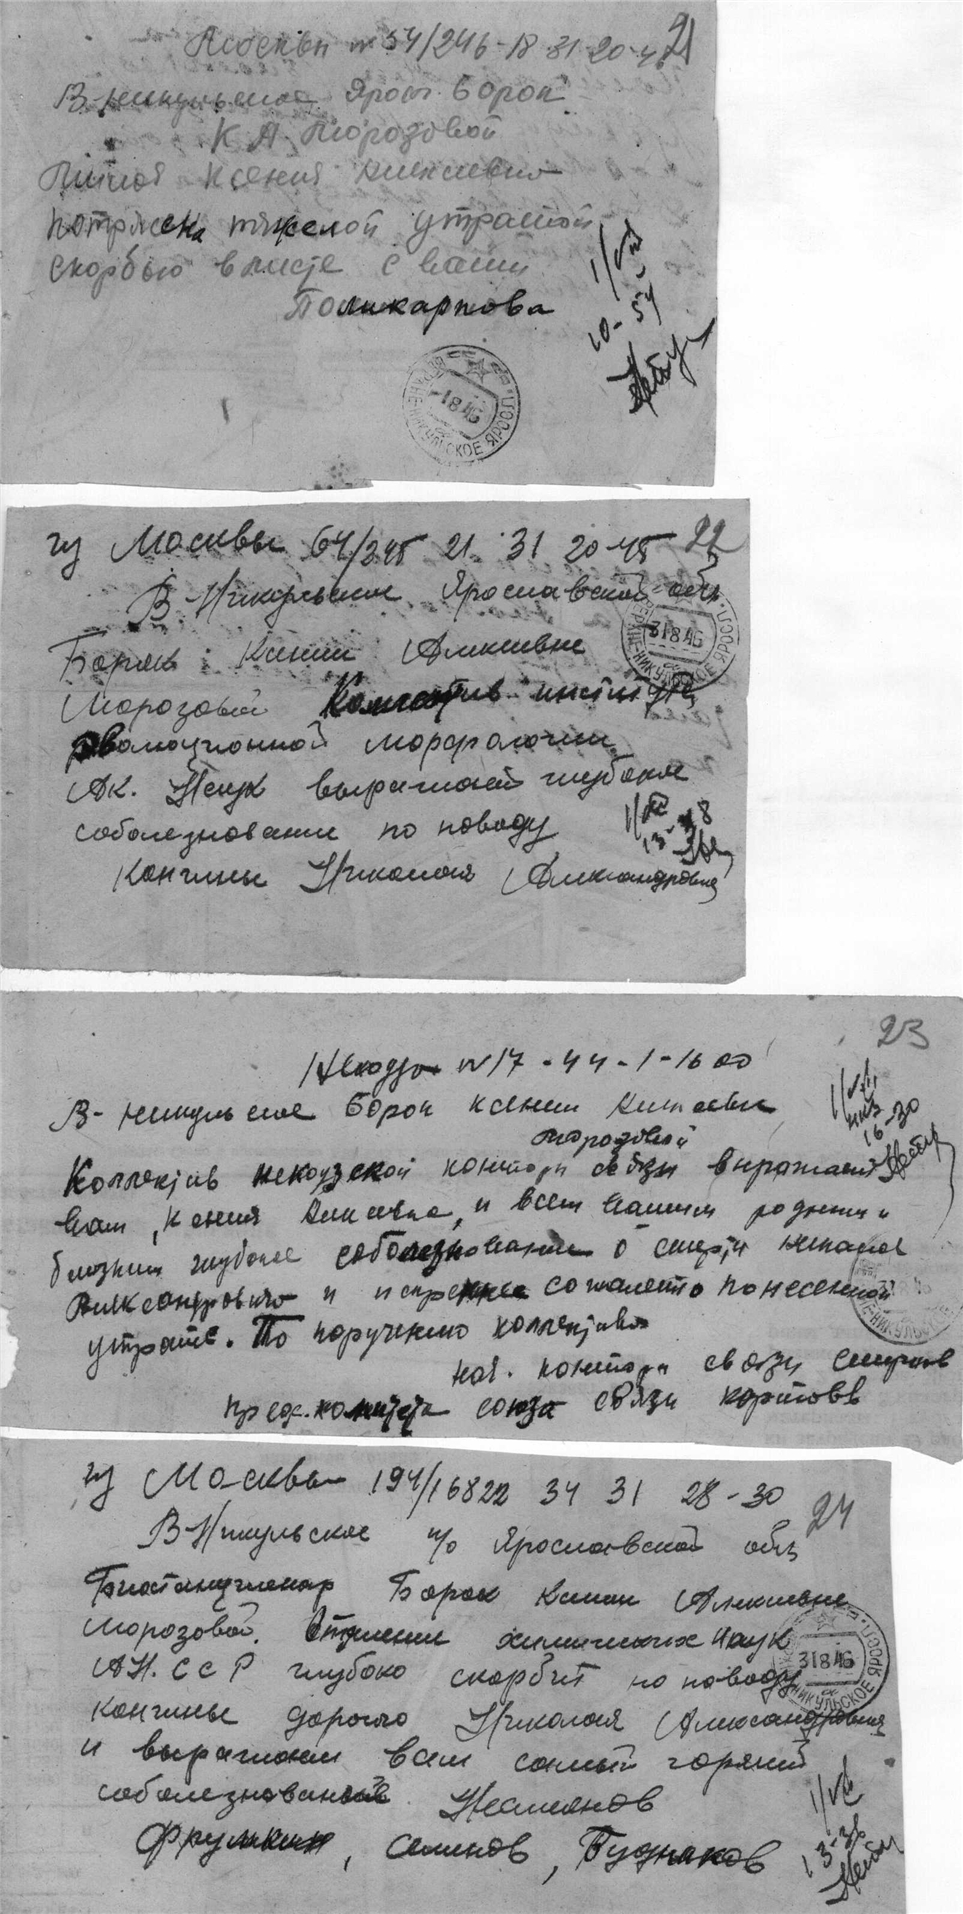 21
Москвы № 54/246-18 31 20-46
В-никульское Яросл. Борок
К А Морозовой
Милая Ксения Алексеевна
потрясена тяжелой утратой
скорблю вместе с вами
Поликарпова
10-54
ВЕРХНЕ-НИКУЛЬСКОЕ ЯРОСЛ.
1846
22
из Москвы 64/245 21 31 20-45
В-Никульское Ярославской обл
Борок Ксении Алексеевне
Морозовой Коллектив института
эволюционной морфологии
Ак. Наук выражает глубокое
соболезнование по поводу
кончины Николая Александровича
31846
23
Некоуза № 17-44-1-16 00
В-никульское Борок Ксении Алексеевне
Морозовой
16-30
Коллектив некоузской конторы связи выражает
вам, Ксения Алексеевна, и всем вашим родным и
близким глубокое соболезнование о смерти Николая
Александровича и искреннее сожаление понесенной
утрате. По поручению коллектива
нач. конторы связи Смирнов
пред. комитета союза связи
24
из Москвы 194/16822 34 31 28-30
В-Никульское п/о Ярославской обл
Биостанционар Борок Ксении Алексеевне
Морозовой. Отделение химических наук
АН. СССР глубоко скорбит по поводу
кончины дорогого Николая Александровича
и выражаем вам самый горячий
соболезнование Несмеянов
Фрумкин, Семенов,
31846
НИКУЛЬСКОЕ ЯРОСЛ.
13-36